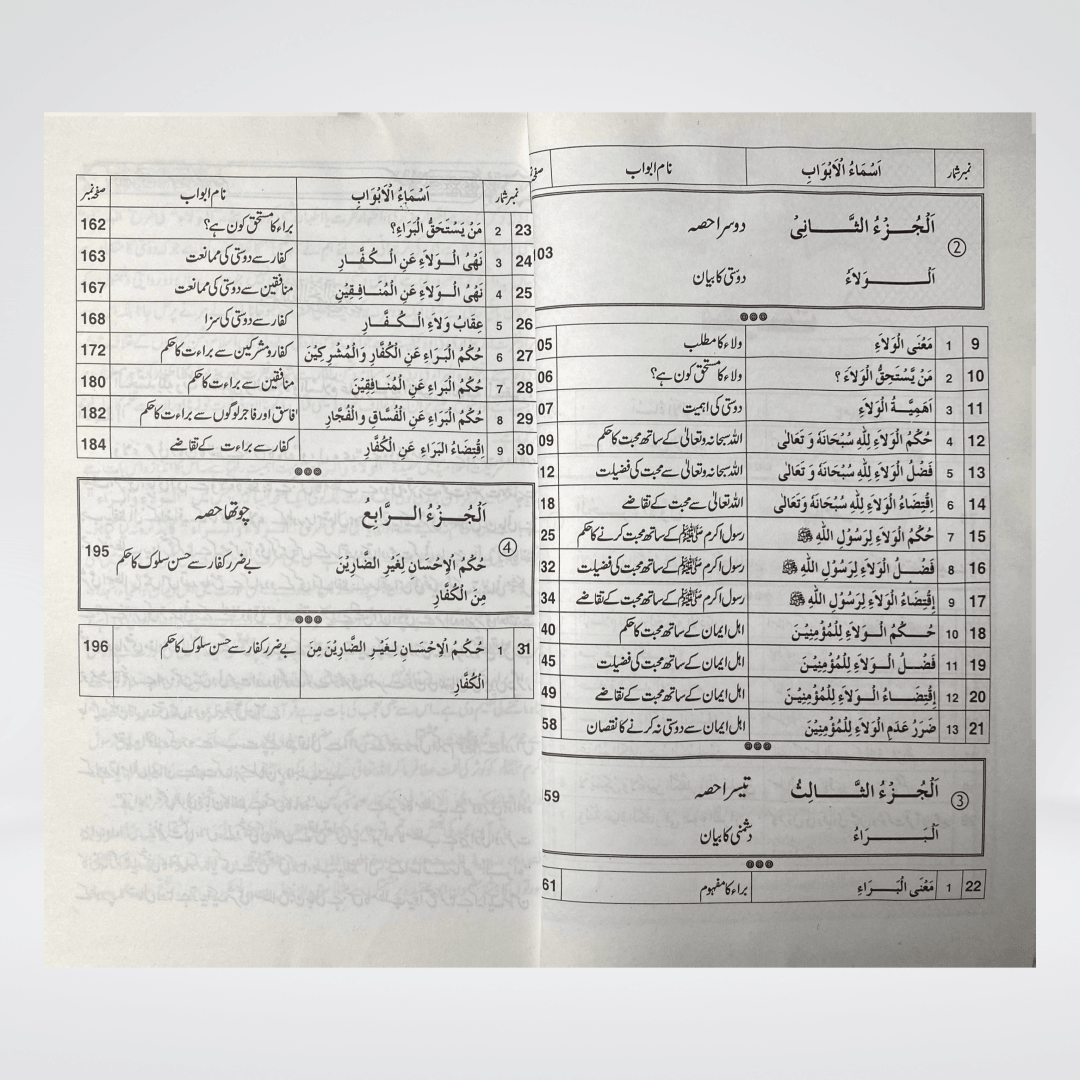 نمبر شمار اَسْمَاءُ الْاَبْوَابِ نام ابواب
② اَلْجُزْءُ الثَّانِیْ دوسرا حصہ 03
اَلْوَلَاءُ دوستی کا بیان
9 1 مَعْنَی الْوَلَاءِ ولاء کا مطلب 05
10 2 مَنْ یَّسْتَحِقُّ الْوَلَاءَ ؟ ولاء کا مستحق کون ہے؟ 06
11 3 اَهَمِیَّةُ الْوَلَاءِ دوستی کی اہمیت 07
12 4 حُکْمُ الْوَلَاءِ لِلّٰهِ سُبْحَانَهٗ وَ تَعَالٰی اللہ سبحانہ وتعالیٰ کے ساتھ محبت کا حکم 09
13 5 فَضْلُ الْوَلَاءِ لِلّٰهِ سُبْحَانَهٗ وَ تَعَالٰی اللہ سبحانہ وتعالیٰ سے محبت کی فضیلت 12
14 6 اِقْتِضَاءُ الْوَلَاءِ لِلّٰهِ سُبْحَانَهٗ وَتَعَالٰی اللہ تعالیٰ سے محبت کے تقاضے 18
15 7 حُکْمُ الْوَلَاءِ لِرَسُوْلِ اللّٰهِ ﷺ رسول اکرم ﷺ کے ساتھ محبت کرنے کا حکم 25
16 8 فَضْلُ الْوَلَاءِ لِرَسُوْلِ اللّٰهِ ﷺ رسول اکرم ﷺ کے ساتھ محبت کی فضیلت 32
17 9 اِقْتِضَاءُ الْوَلَاءِ لِرَسُوْلِ اللّٰهِ ﷺ رسول اکرم ﷺ کے ساتھ محبت کے تقاضے 34
18 10 حُکْمُ الْوَلَاءِ لِلْمُؤْمِنِیْنَ اہل ایمان کے ساتھ محبت کا حکم 40
19 11 فَضْلُ الْوَلَاءِ لِلْمُؤْمِنِیْنَ اہل ایمان کے ساتھ محبت کی فضیلت 45
20 12 اِقْتِضَاءُ الْوَلَاءِ لِلْمُؤْمِنِیْنَ اہل ایمان کے ساتھ محبت کے تقاضے 49
21 13 ضَرَرُ عَدَمِ الْوَلَاءِ لِلْمُؤْمِنِیْنَ اہل ایمان سے دوستی نہ کرنے کا نقصان 58
③ اَلْجُزْءُ الثَّالِثُ تیسرا حصہ 59
اَلْبَرَاءُ دشمنی کا بیان
22 1 مَعْنَی الْبَرَاءِ براء کا مفہوم 61
نمبر شمار اَسْمَاءُ الْاَبْوَابِ نام ابواب صفحہ نمبر
23 2 مَنْ یَسْتَحِقُّ الْبَرَاءِ؟ براء کا مستحق کون ہے؟ 162
24 3 نَهْیُ الْوَلَاءِ عَنِ الْکُفَّارِ کفار سے دوستی کی ممانعت 163
25 4 نَهْیُ الْوَلَاءِ عَنِ الْمُنَافِقِیْنَ منافقین سے دوستی کی ممانعت 167
26 5 عِقَابُ وَلَاءِ الْکُفَّارِ کفار سے دوستی کی سزا 168
27 6 حُکْمُ الْبَرَاءِ عَنِ الْکُفَّارِ وَالْمُشْرِکِیْنَ کفار و مشرکین سے براءت کا حکم 172
28 7 حُکْمُ الْبَرَاءِ عَنِ الْمُنَافِقِیْنَ منافقین سے براءت کا حکم 180
29 8 حُکْمُ الْبَرَاءِ عَنِ الْفُسَّاقِ وَ الْفُجَّارِ فاسق اور فاجر لوگوں سے براءت کا حکم 182
30 9 اِقْتِضَاءُ الْبَرَاءِ عَنِ الْکُفَّارِ کفار سے براءت کے تقاضے 184
④ اَلْجُزْءُ الرَّابِعُ چوتھا حصہ 195
حُکْمُ الْاِحْسَانِ لِغَیْرِ الضَّارِیْنَ بے ضرر کفار سے حسن سلوک کا حکم
مِنَ الْکُفَّارِ
31 1 حُکْمُ الْاِحْسَانِ لِغَیْرِ الضَّارِیْنَ مِنَ بے ضرر کفار سے حسن سلوک کا حکم 196
الْکُفَّارِ